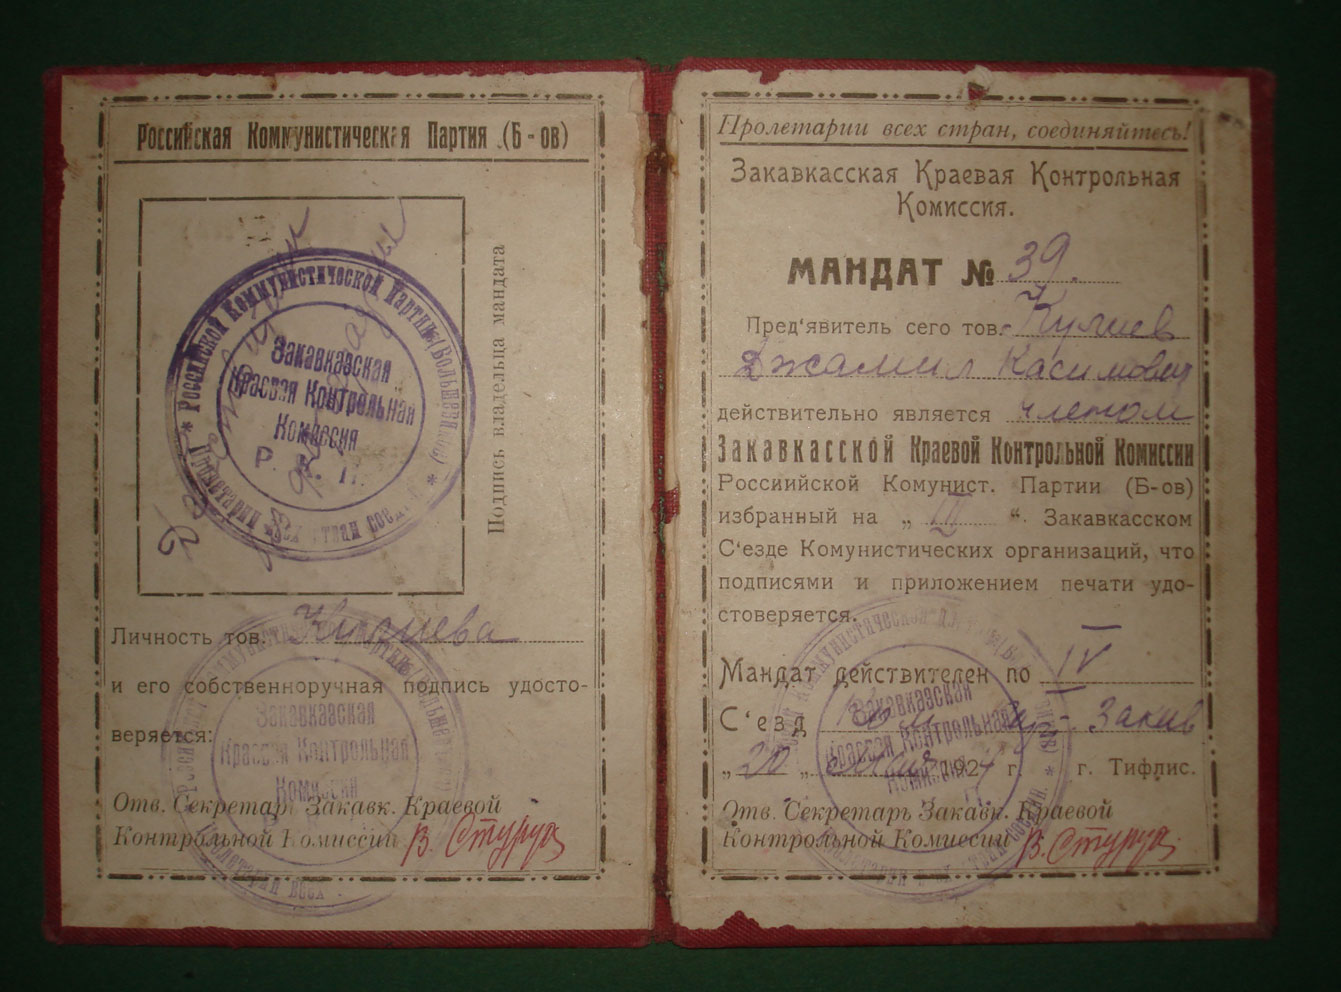 Российская Коммунистическая Партия (Б-ов)
Российской Коммунистической Партии (Большевиков)
Закавказская
Краевая Контрольная
Комиссия
Р. К. П.
Подпись владельца мандата
Личность тов. Кулиева
и его собственноручная подпись удосто-
веряется:
Закавказская
Краевая Контрольная
Комиссия
Отв. Секретарь Закавк. Краевой
Контрольной Комиссии В. Стуруа
Пролетарии всех стран, соединяйтесь!
Закавкасская Краевая Контрольная
Комиссия.
МАНДАТ № 39.
Пред‘явитель сего тов. Кулиев
Джамил Касимович
действительно является членом
Закавкасской Краевой Контрольной Комиссии
Россиийской Комунист. Партии (Б-ов)
избранный на „ III “. Закавкасском
С‘езде Комунистических организаций, что
подписями и приложением печати удо-
стоверяется.
Мандат действителен по IV
С‘езд Закав
„ 20 „ мая 1924 г. г. Тифлис.
Закавказская
Краевая Контрольная
Комиссия
Отв. Секретаръ Закавк. Краевой
Контрольной Комиесии В. Стуруа